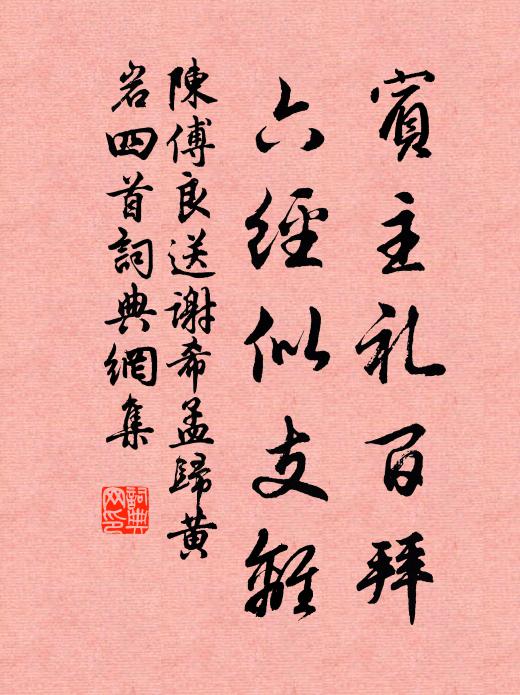 賓主礼百拜
六經似支離
陳傅良送謝希孟歸黃
岩四首詞典網集
詞典
网印